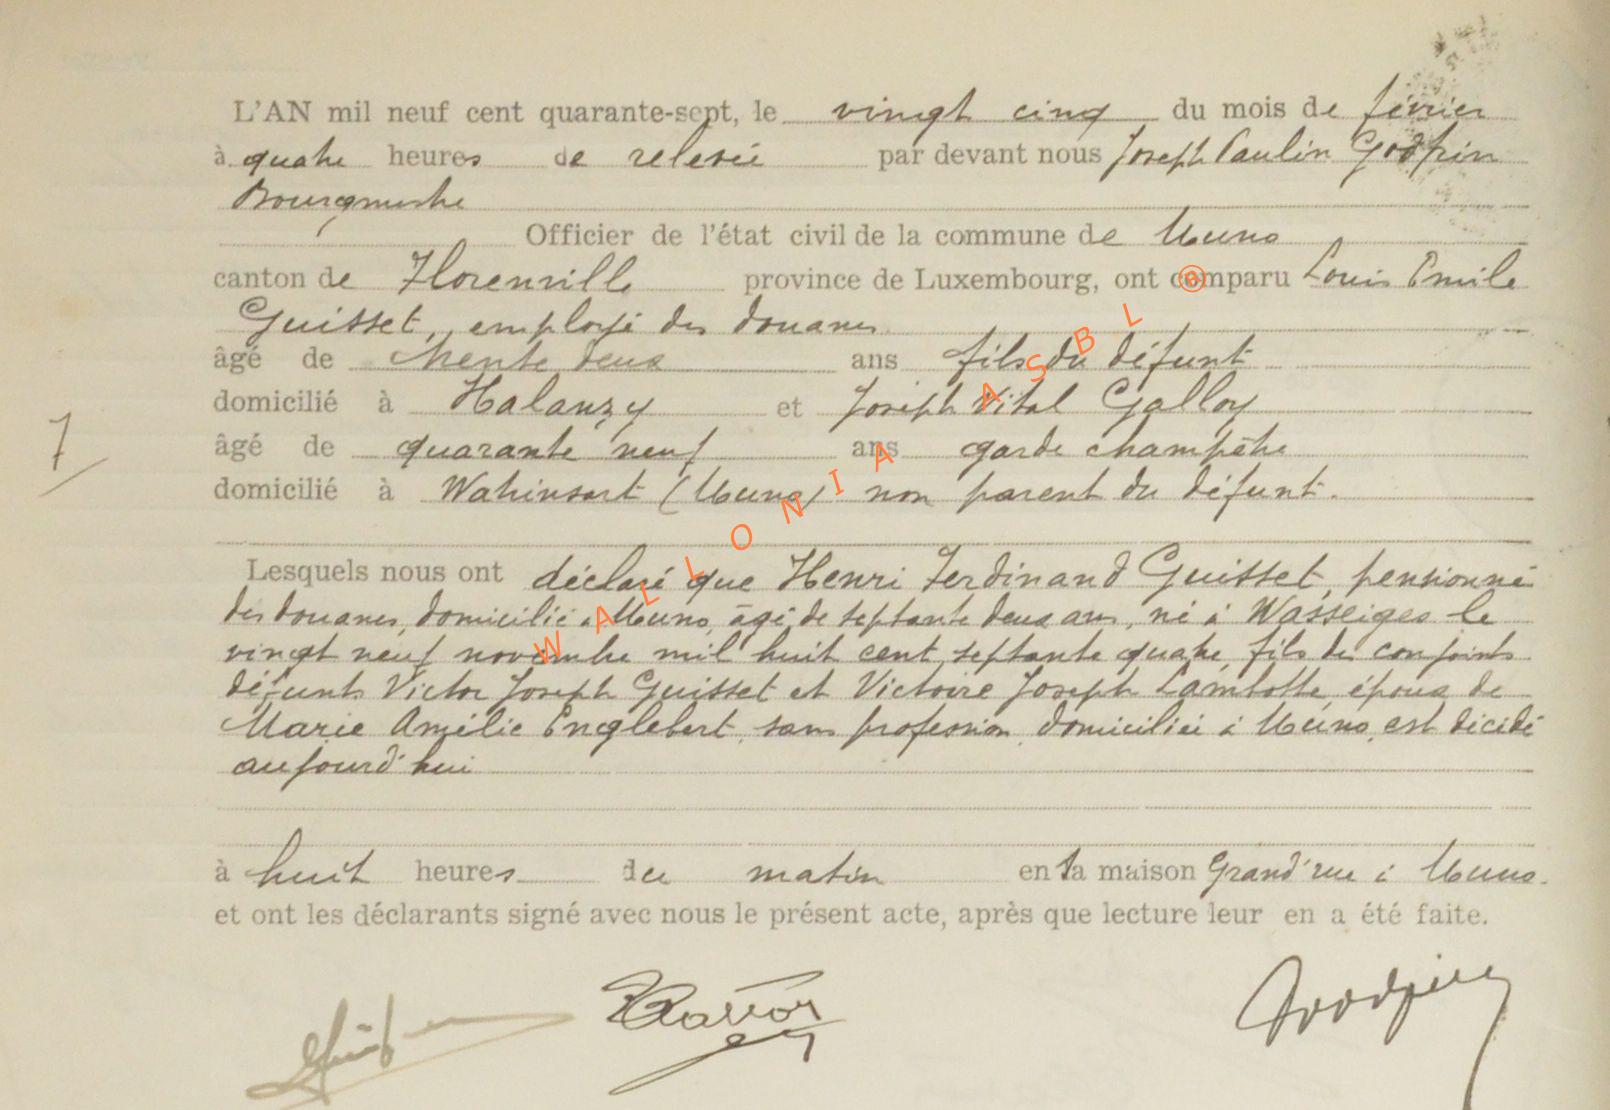 L'AN mil neuf cent quarante-sept, le vingt cinq du mois de février
à quatre heures de relevée par devant nous Joseph Paulin Godfrin
Bourgmestre
Officier de l'état civil de la commune de Muno
canton de Florenville province de Luxembourg, ont comparu Louis Emile
Guisset, employé des douanes
âgé de trente deux ans fils du défunt
domicilié à Halanzy et Joseph Vital Galloy
âgé de quarante neuf ans garde champêtre
domicilié à Watrinsart (Muno) non parent du défunt.
7
Lesquels nous ont déclaré que Henri Ferdinand Guisset, pensionné
des douanes, domicilié à Muno, âgé de septante deux ans, né à Wasseiges le
vingt neuf novembre mil huit cent septante quatre, fils des conjoints
défunts Victor Joseph Guisset et Victoire Joseph Lambotte, époux de
Marie Amélie Englebert, sans profession, domiciliée à Muno, est décédé
aujourd'hui
à huit heures du matin en sa maison Grand'rue à Muno.
et ont les déclarants signé avec nous le présent acte, après que lecture leur en a été faite.
WALLONIA ASBL ®